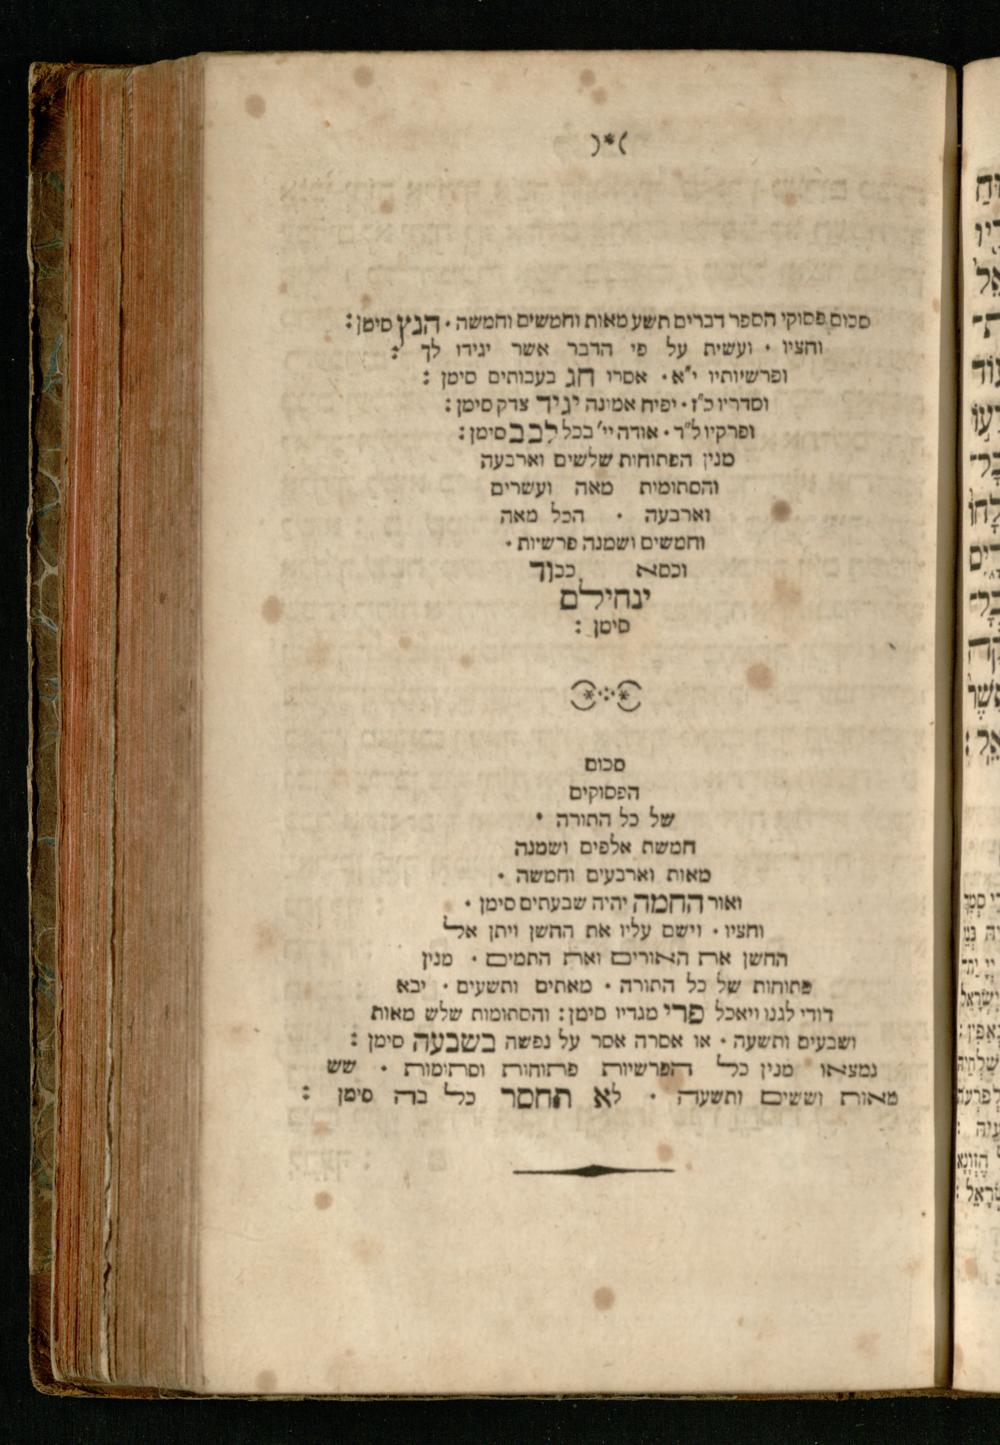 סכום פסוקי הספר דברים תשע מאות וחמשים וחמשה · הנץ סימן :
וחציו · ועשית על פי הדבר אשר יגידו לך :
ופרשיותיו י״א · אסרו חג בעבותים סימן :
וסדריו כ״ז · יפיח אמונה יגיד צדק סימן :
ופרקיו ל״ד · אודה יי׳ בכל לבב סימן :
מנין הפתוחות שלשים וארבעה
והסתומית מאה ועשרים
וארבעה · הכל מאה
וחמשים ושמנה פרשיות ·
וכסא כבוד
ינחילם
סימן :
סכום
הפסוקים
של כל התורה ·
חמשת אלפים ושמנה
מאות וארבעים וחמשה ·
ואור החמה יהיה שבעתים סימן ·
וחציו · וישם עליו את החשן ויתן אל
החשן את האורים ואת התמים · מנין
פתוחות של כל התורה · מאתים ותשעים · יבא
דודי לגנו ויאכל פרי מגדיו סימן : והסתומות שלש מאות
ושבעים ותשעה · או אסרה אסר על נפשה בשבעה סימן :
נמצאו מנין כל הפרשיות פתוחות וסתומות · שש
מאות וששים ותשעה · לא תחסר כל בה סימן :